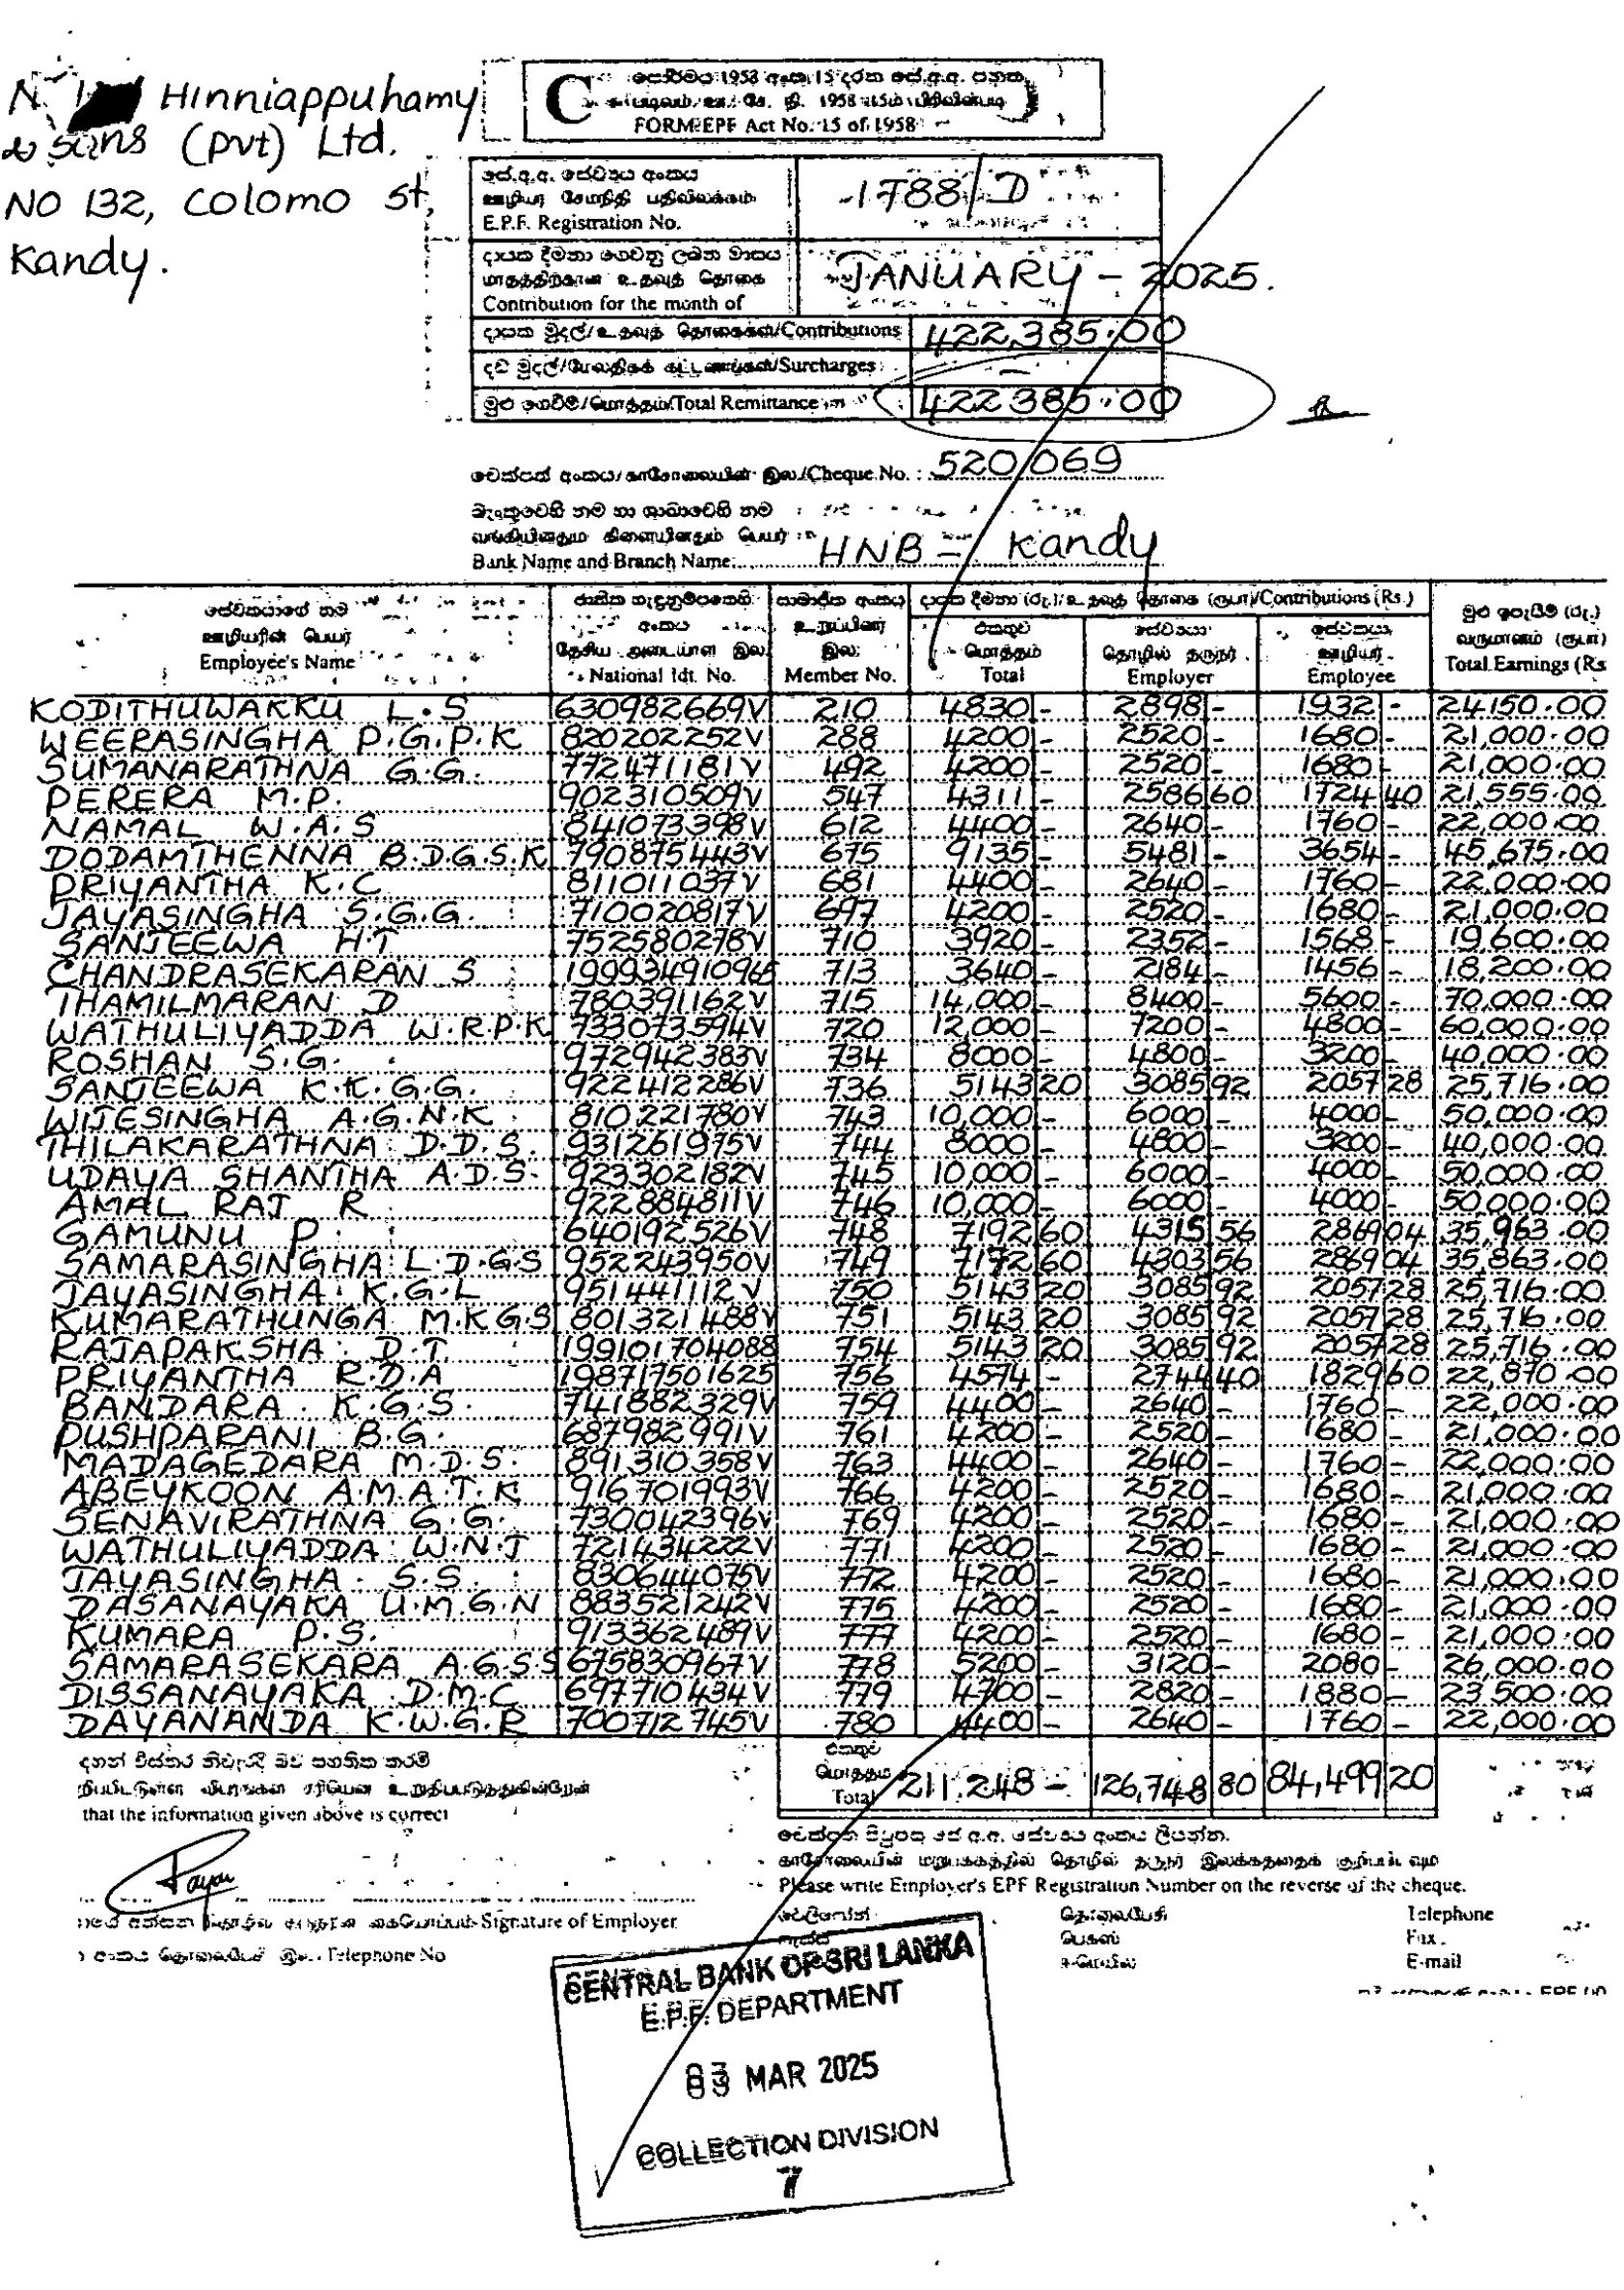 Hinniappuhamy
& Sons (pvt) Ltd.
NO 132, Colomo St,
Kandy.
C
FORM EPF Act No. 15 of 1958
E.P.F. Registration No.
1788/D
Contribution for the month of
JANUARY - 2025.
දායක මුදල්/உதவுத் தொகைகள்/Contributions 422,385.00
දඩ මුදල්/Surcharges -
මුළු ගෙවීම්/மொத்தம்/Total Remittance 422385.00
Cheque No. : 520069
Bank Name and Branch Name: HNB - Kandy
Contributions (Rs.)
Employee's Name National Idt. No. Member No. Total Employer Employee Total Earnings (Rs
KODITHUWAKKU L.S 630982669V 210 4830 - 2898 - 1932 - 24150.00
WEERASINGHA P.G.P.K 820202252V 288 4200 - 2520 - 1680 - 21,000.00
SUMANARATHNA G.G. 772471181V 492 4200 - 2520 - 1680 - 21,000.00
PERERA M.P. 902310509V 547 4311 - 2586 60 1724 40 21,555.00
NAMAL W.A.S 841073398V 612 4400 - 2640 - 1760 - 22,000.00
DODAMTHENNA B.D.G.S.K 790875443V 675 9135 - 5481 - 3654 - 45,675.00
PRIYANTHA K.C 811011037V 681 4400 - 2640 - 1760 - 22,000.00
JAYASINGHA S.G.G. 710020817V 697 4200 - 2520 - 1680 - 21,000.00
SANJEEWA H.T 752580278V 710 3920 - 2352 - 1568 - 19,600.00
CHANDRASEKARAN S 199934910965 713 3640 - 2184 - 1456 - 18,200.00
THAMILMARAN D 780391162V 715 14,000 - 8400 - 5600 - 70,000.00
WATHULIYADDA W.R.P.K 733073594V 720 12,000 - 7200 - 4800 - 60,000.00
ROSHAN S.G. 972942383V 734 8000 - 4800 - 3200 - 40,000.00
SANJEEWA K.K.G.G. 922412286V 736 5143 20 3085 92 2057 28 25,716.00
WIJESINGHA A.G.N.K 810221780V 743 10,000 - 6000 - 4000 - 50,000.00
THILAKARATHNA D.D.S. 931261975V 744 8000 - 4800 - 3200 - 40,000.00
UDAYA SHANTHA A.D.S. 923302182V 745 10,000 - 6000 - 4000 - 50,000.00
AMAL RAJ R 922884811V 746 10,000 - 6000 - 4000 - 50,000.00
GAMUNU P 640192526V 748 7192 60 4315 56 2869 04 35,963.00
SAMARASINGHA L.D.G.S 952243950V 749 7172 60 4303 56 2869 04 35,863.00
JAYASINGHA K.G.L 951441112V 750 5143 20 3085 92 2057 28 25,716.00
KUMARATHUNGA M.K.G.S 801321488V 751 5143 20 3085 92 2057 28 25,716.00
RAJAPAKSHA D.T 199101704088 754 5143 20 3085 92 2057 28 25,716.00
PRIYANTHA R.D.A 198717501625 756 4574 - 2744 40 1829 60 22,870.00
BANDARA K.G.S. 741882329V 759 4400 - 2640 - 1760 - 22,000.00
PUSHPARANI B.G. 687982991V 761 4200 - 2520 - 1680 - 21,000.00
MADAGEDARA M.D.S. 891310358V 763 4400 - 2640 - 1760 - 22,000.00
ABEYKOON A.M.A.T.K 916701993V 766 4200 - 2520 - 1680 - 21,000.00
SENAVIRATHNA G.G. 730042396V 769 4200 - 2520 - 1680 - 21,000.00
WATHULIYADDA W.N.J 721434222V 771 4200 - 2520 - 1680 - 21,000.00
JAYASINGHA S.S. 830644075V 772 4200 - 2520 - 1680 - 21,000.00
DASANAYAKA U.M.G.N 883521242V 775 4200 - 2520 - 1680 - 21,000.00
KUMARA P.S. 913362489V 777 4200 - 2520 - 1680 - 21,000.00
SAMARASEKARA A.G.S.S 675830967V 778 5200 - 3120 - 2080 - 26,000.00
DISSANAYAKA D.M.C 697710434V 779 4700 - 2820 - 1880 - 23,500.00
DAYANANDA K.W.G.R 700712745V 780 4400 - 2640 - 1760 - 22,000.00
Total 211,248 - 126,748 80 84,499 20
that the information given above is correct
Please write Employer's EPF Registration Number on the reverse of the cheque.
Signature of Employer
Telephone No
Telephone
Fax
E-mail
CENTRAL BANK OF SRI LANKA
E.P.F. DEPARTMENT
03 MAR 2025
COLLECTION DIVISION
7